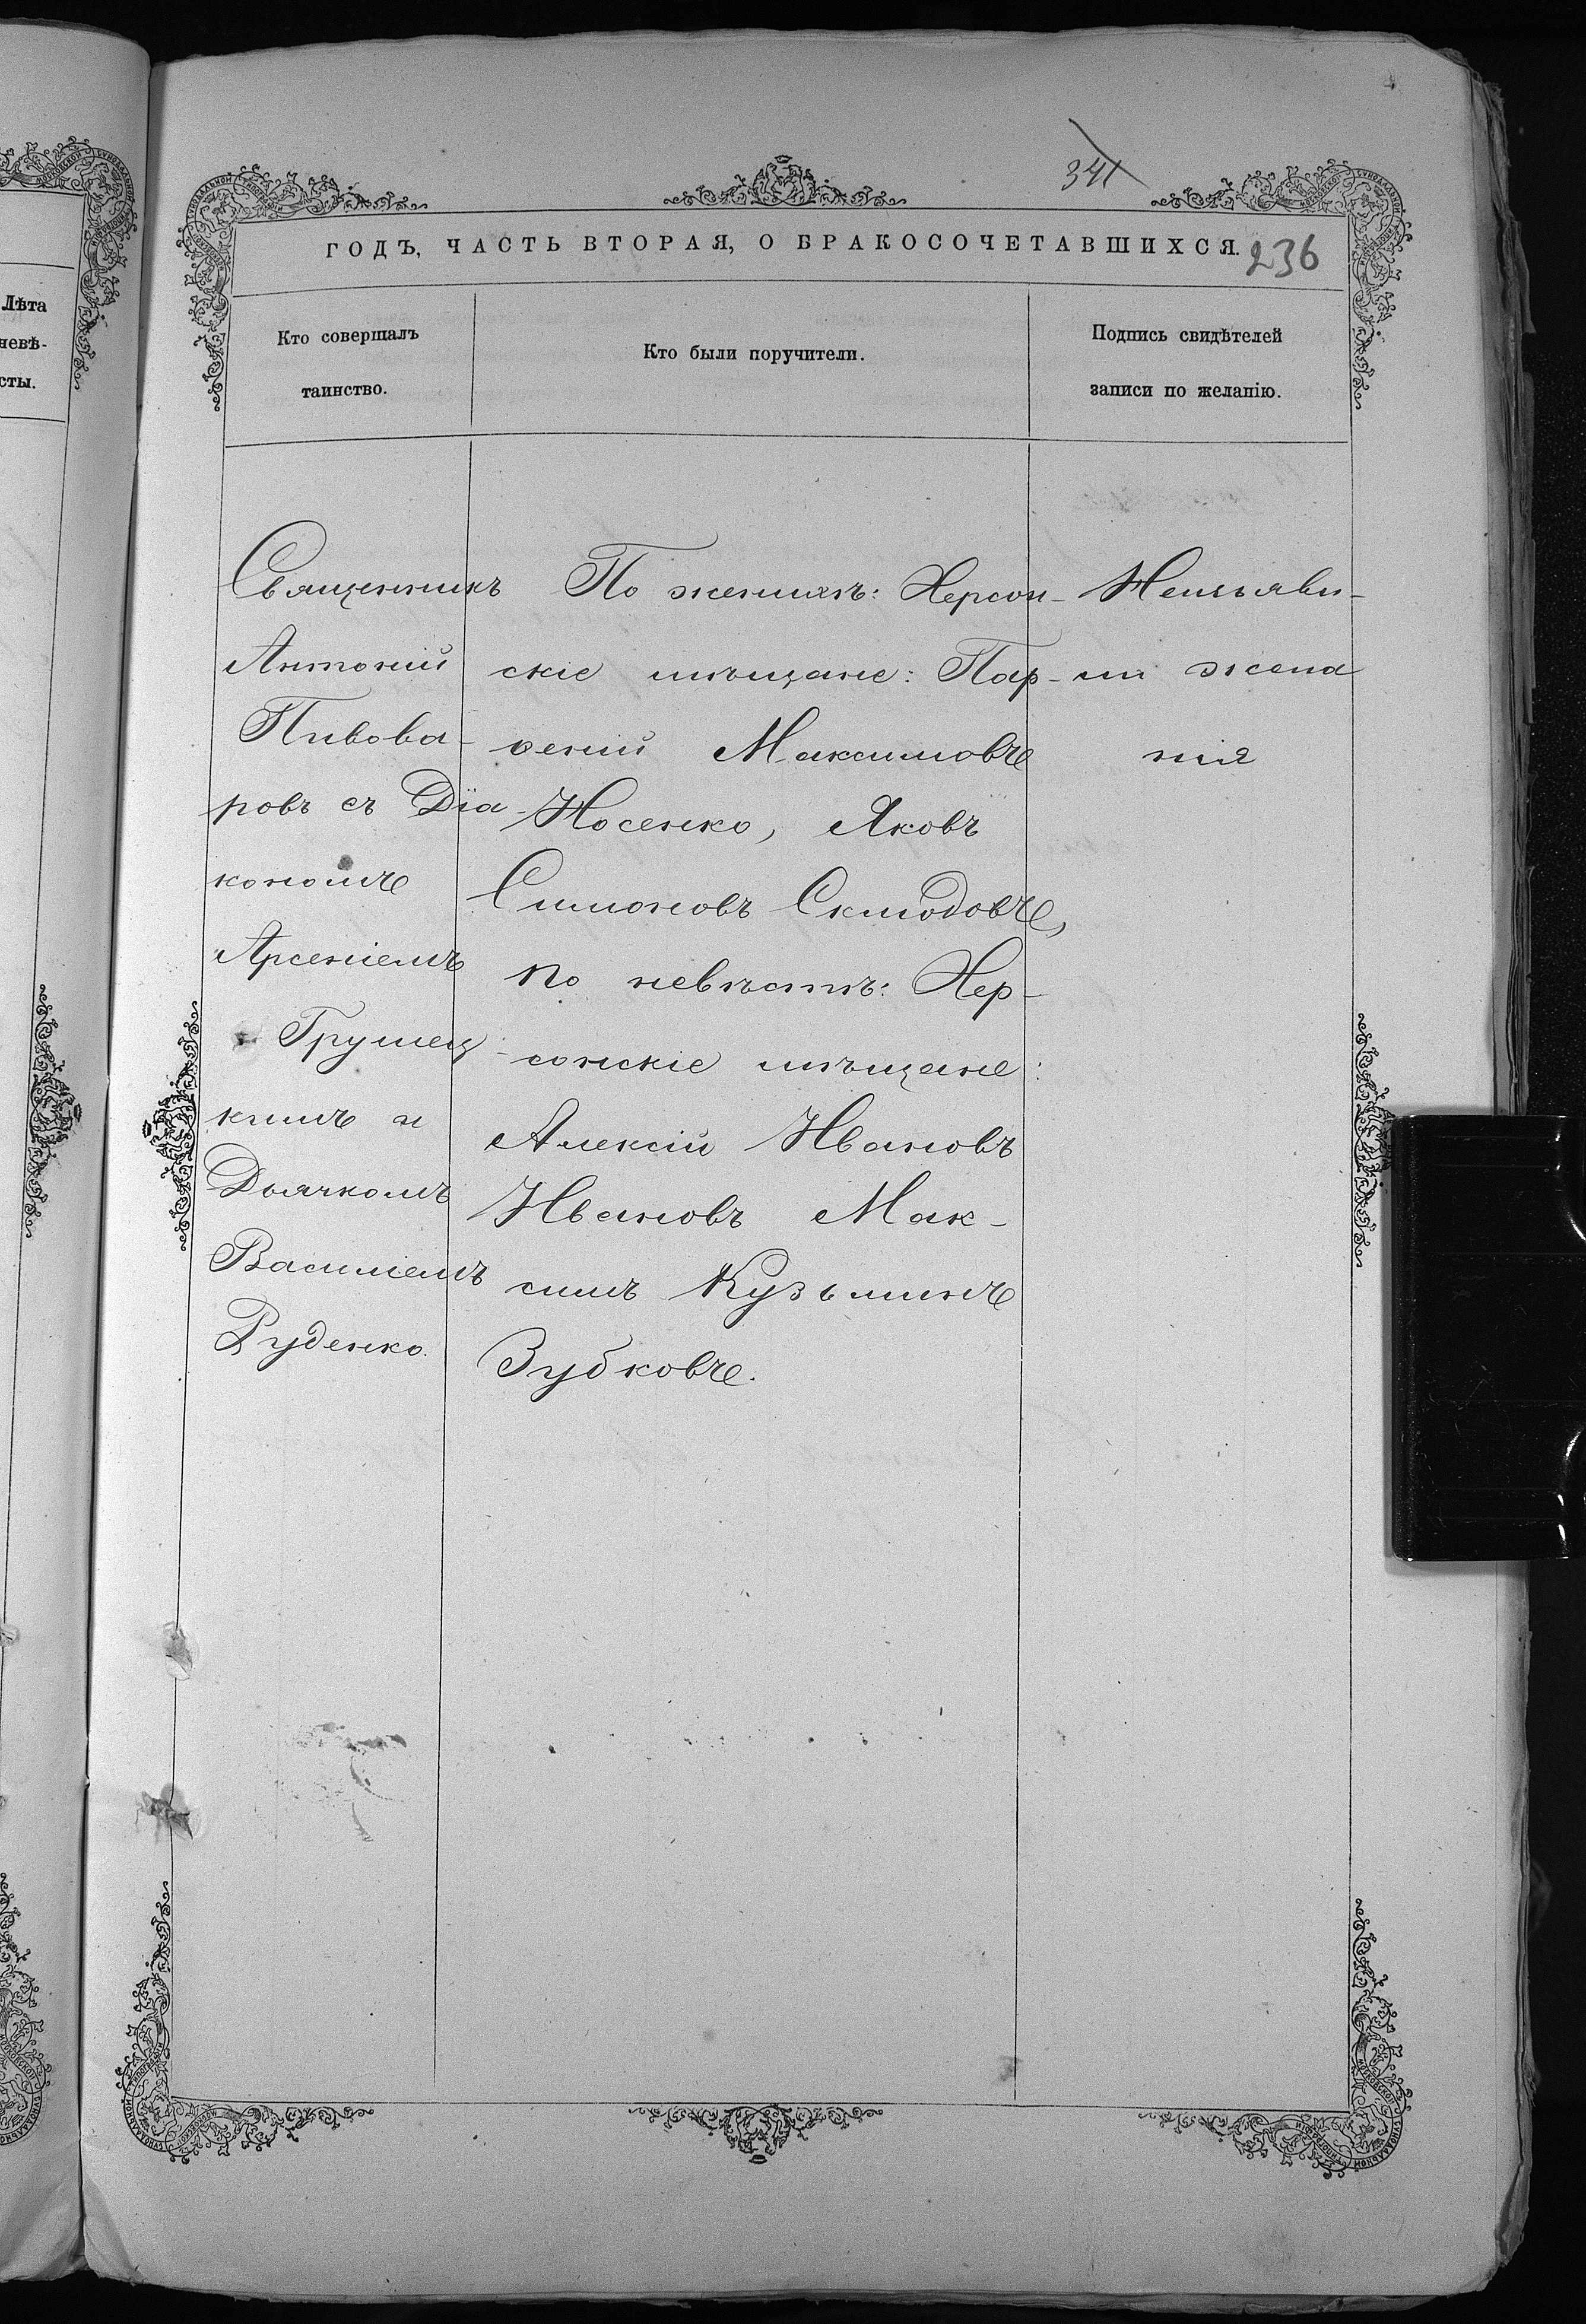 341
ГОДЪ, ЧАСТЬ ВТОРАЯ, О БРАКОСОЧЕТАВШИХСЯ.
236
Лѣта
невѣ-
сты.
Кто совершалъ
таинство.
Кто были поручители.
Подпись свидѣтелей
записи по желанію.
Священникъ
Антоній
Пивова-
ровъ съ Діа-
кономъ
Арсеніемъ
Грушец-
кимъ и
Дьячкомъ
Василіемъ
Руденко.
По женихѣ: Херсон-
скіе мѣщане: Пар-
ѳеній Максимовъ
Носенко, Яковъ
Симоновъ
по невѣстѣ: Хер-
сонскіе мѣщане:
Алексій Ивановъ
Ивановъ Мак-
симъ Кузьминъ
Зубковъ.
Неизъяви-
ли жела
нія